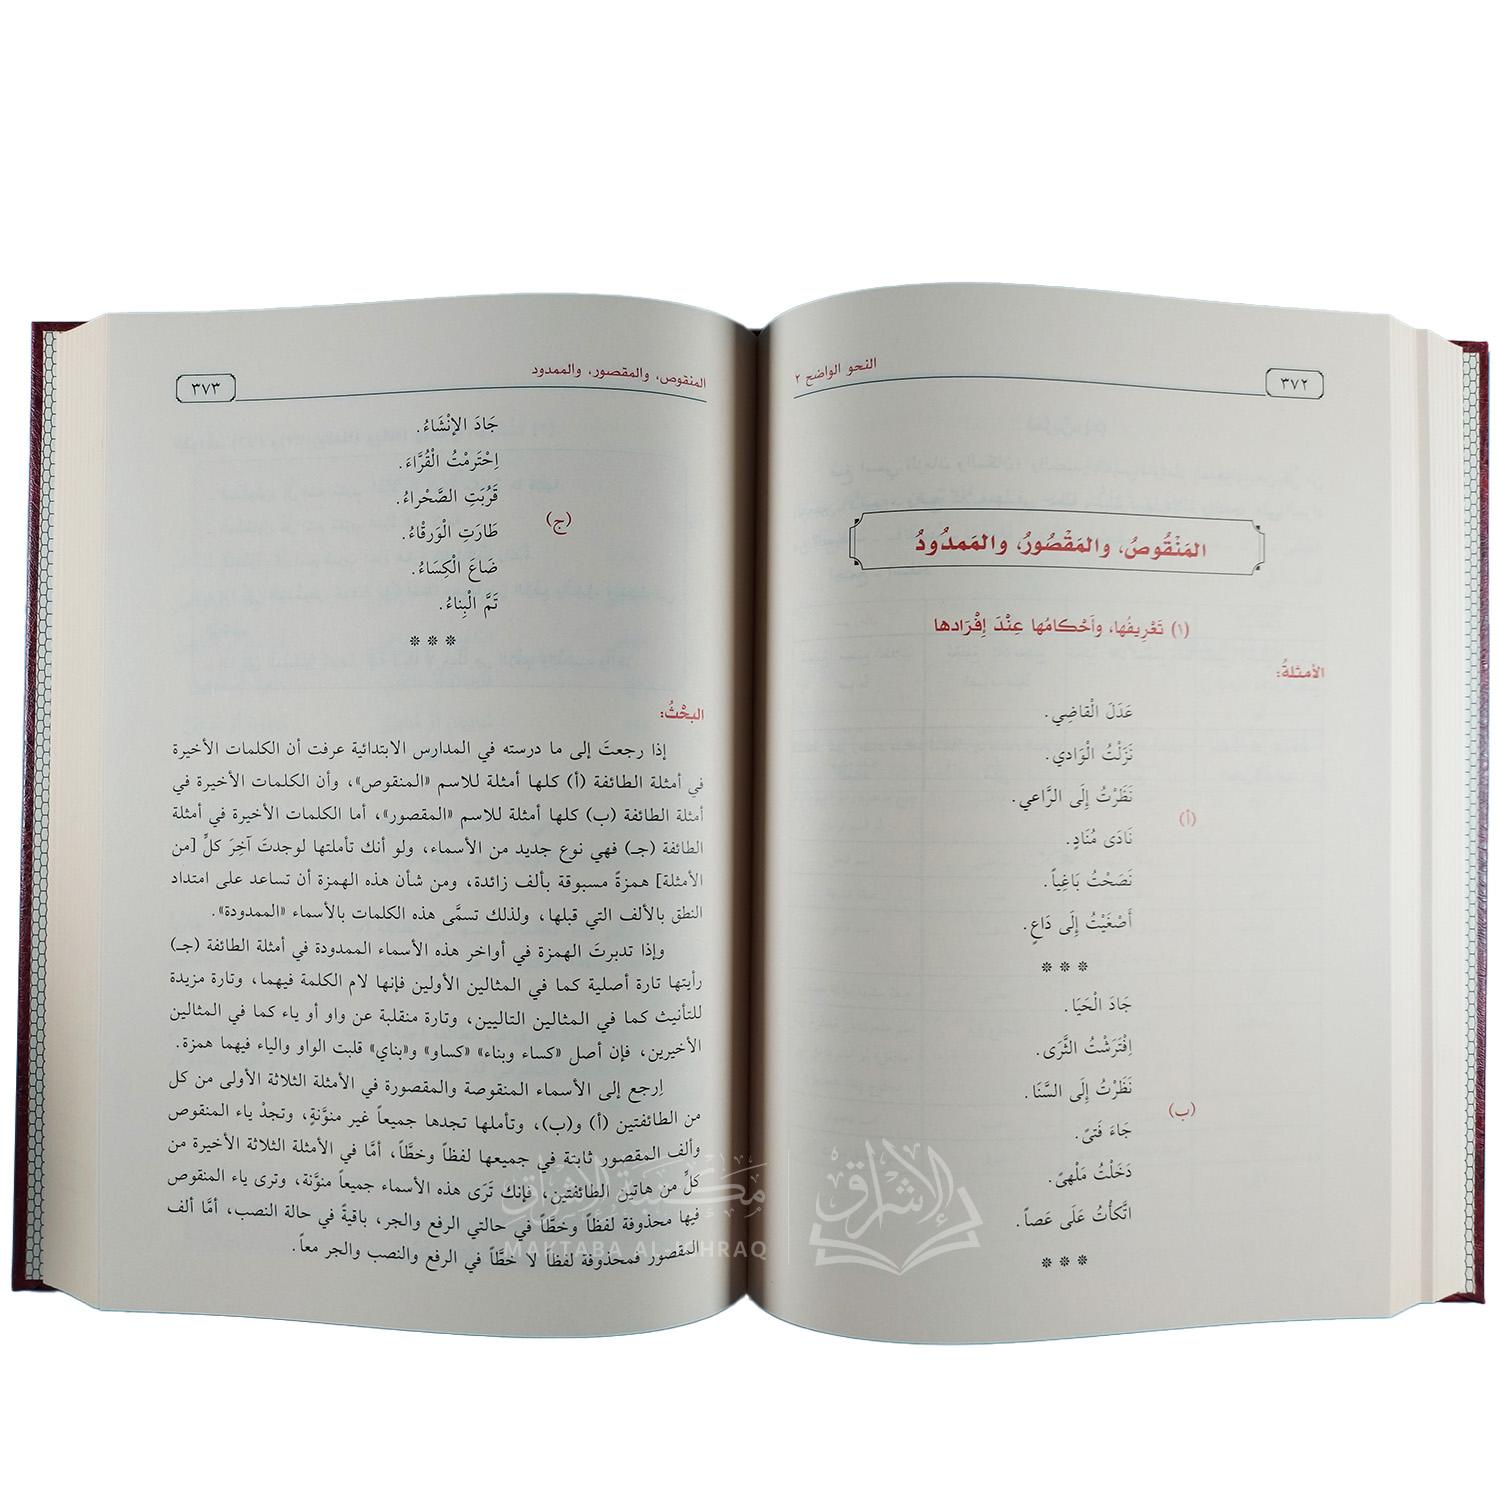 ٣٧٢
النحو الواضح ٢
المَنْقُوصُ، والمَقْصُورُ، والمَمدُودُ
(١) تَعْرِيفُها، وأَحْكامُها عِنْدَ إفْرَادها
الأمثلةُ:
عَدَلَ الْقاضِي.
نَزَلْتُ الْوَادي.
نَظَرْتُ إِلَى الرَّاعي.
(أ)
نَادَى مُنَادٍ.
نَصَحْتُ بَاغِياً.
أَصْغَيْتُ إِلَى دَاعٍ.
***
جَادَ الْحَيَا.
اِفْتَرَشْتُ الثَّرَى.
نَظَرْتُ إِلَى السَّنَا.
(ب)
جَاءَ فَتىً.
دَخَلْتُ مَلْهىً.
اتَّكأتُ عَلَى عَصاً.
***
المنقوص، والمقصور، والممدود
٣٧٣
جَادَ الإنْشَاءُ.
اِحْتَرمْتُ الْقُرَّاءَ.
قَرُبَتِ الصَّحْراءُ.
(ج)
طَارَتِ الْوَرقْاءُ.
ضَاعَ الْكِسَاءُ.
تَمَّ الْبِناءُ.
***
البحْثُ:
إذا رجعتَ إلى ما درسته في المدارس الابتدائية عرفت أن الكلمات الأخيرة
في أمثلة الطائفة (أ) كلها أمثلة للاسم «المنقوص»، وأن الكلمات الأخيرة في
أمثلة الطائفة (ب) كلها أمثلة للاسم «المقصور»، أما الكلمات الأخيرة في أمثلة
الطائفة (جـ) فهي نوع جديد من الأسماء، ولو أنك تأملتها لوجدتَ آخِرَ كلٍّ [من
الأمثلة] همزةً مسبوقة بألف زائدة، ومن شأن هذه الهمزة أن تساعد على امتداد
النطق بالألف التي قبلها، ولذلك تسمَّى هذه الكلمات بالأسماء «الممدودة».
وإذا تدبرتَ الهمزة في أواخر هذه الأسماء الممدودة في أمثلة الطائفة (جـ)
رأيتها تارة أصلية كما في المثالين الأولين فإنها لام الكلمة فيهما، وتارة مزيدة
للتأنيث كما في المثالين التاليين، وتارة منقلبة عن واو أو ياء كما في المثالين
الأخيرين، فإن أصل «كساء وبناء» «كساو» و«بناي» قلبت الواو والياء فيهما همزة.
اِرجع إلى الأسماء المنقوصة والمقصورة في الأمثلة الثلاثة الأولى من كل
من الطائفتين (أ) و(ب)، وتأملها تجدها جميعاً غير منوَّنةٍ، وتجدْ ياء المنقوص
وألف المقصور ثابتة في جميعها لفظاً وخطَّاً، أمَّا في الأمثلة الثلاثة الأخيرة من
كلِّ من هاتين الطائفتين، فإنك تَرَى هذه الأسماء جميعاً منوَّنة، وترى ياء المنقوص
فيها محذوفة لفظاً وخطَّاً في حالتي الرفع والجر، باقيةً في حالة النصب، أمَّا ألف
المقصور فمحذوفة لفظاً لا خطَّاً في الرفع والنصب والجر معاً.
مكتبة الإشراق
MAKTABA AL-ISHRAQ
الإشراق